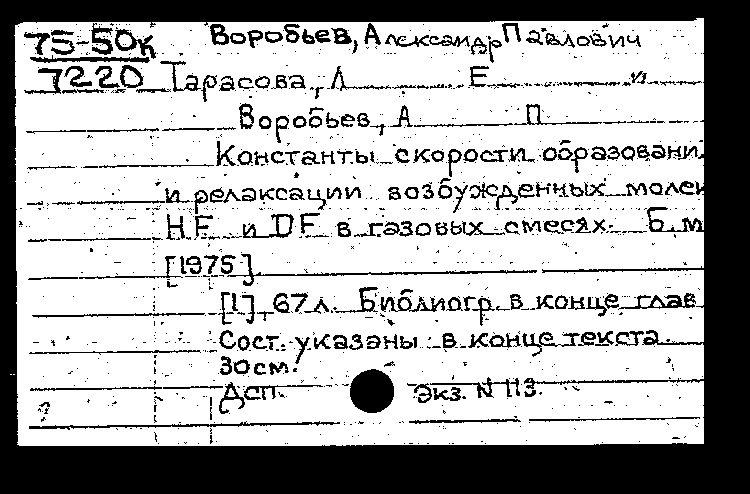 75-50к Воробьев, Александр Павлович
7220 Тарасова, Л Е и
Воробьев, А П
Константы скорости образовани
и релаксации возбужденных молек
HF и DF в газовых смесях. Б.м
[1975].
[1], 67 л. Библиогр. в конце глав
Сост. указаны в конце текста.
30см.
Дсп. Экз. N 113.